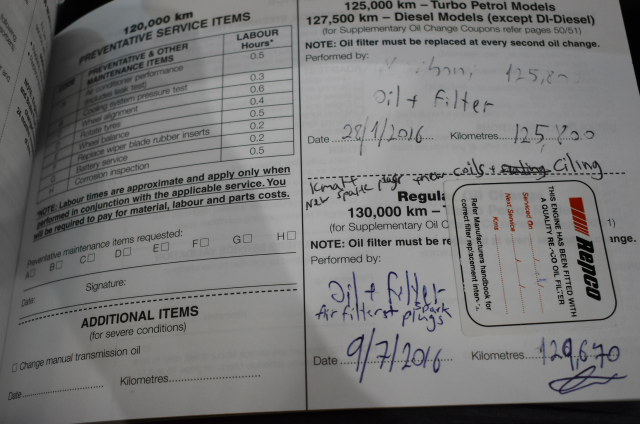 120,000 km
PREVENTATIVE SERVICE ITEMS
PREVENTIVE & OTHER MAINTENANCE ITEMS
LABOUR Hours*
Air conditioner performance (includes leak test) 0.5
Cooling system pressure test 0.3
Wheel alignment 0.6
Rotate tyres 0.4
Wheel balance 0.5
Replace wiper blade rubber inserts 0.2
Battery service 0.2
Corrosion inspection 0.5
*NOTE: Labour times are approximate and apply only when
performed in conjunction with the applicable service. You
will be required to pay for material, labour and parts costs.
Preventative maintenance items requested:
A□ B□ C□ D□ E□ F□ G□ H□
Date: Signature:
ADDITIONAL ITEMS
(for severe conditions)
□ Change manual transmission oil
Date Kilometres
125,000 km – Turbo Petrol Models
127,500 km – Diesel Models (except DI-Diesel)
(for Supplementary Oil Change Coupons refer pages 50/51)
NOTE: Oil filter must be replaced at every second oil change.
Performed by:
Oil + Filter
Date 28/1/2016 Kilometres 125,800
new spark plugs coils +
Regula
130,000 km – T
(for Supplementary Oil C
NOTE: Oil filter must be re nge.
Performed by:
Oil + Filter
Air filter + spark plugs
Date 9/7/2016 Kilometres 129,670
Repco
THIS ENGINE HAS BEEN FITTED WITH
A QUALITY REPCO OIL FILTER
Serviced On
Next Service
Kms
Refer Manufacturers handbook for
correct filter replacement